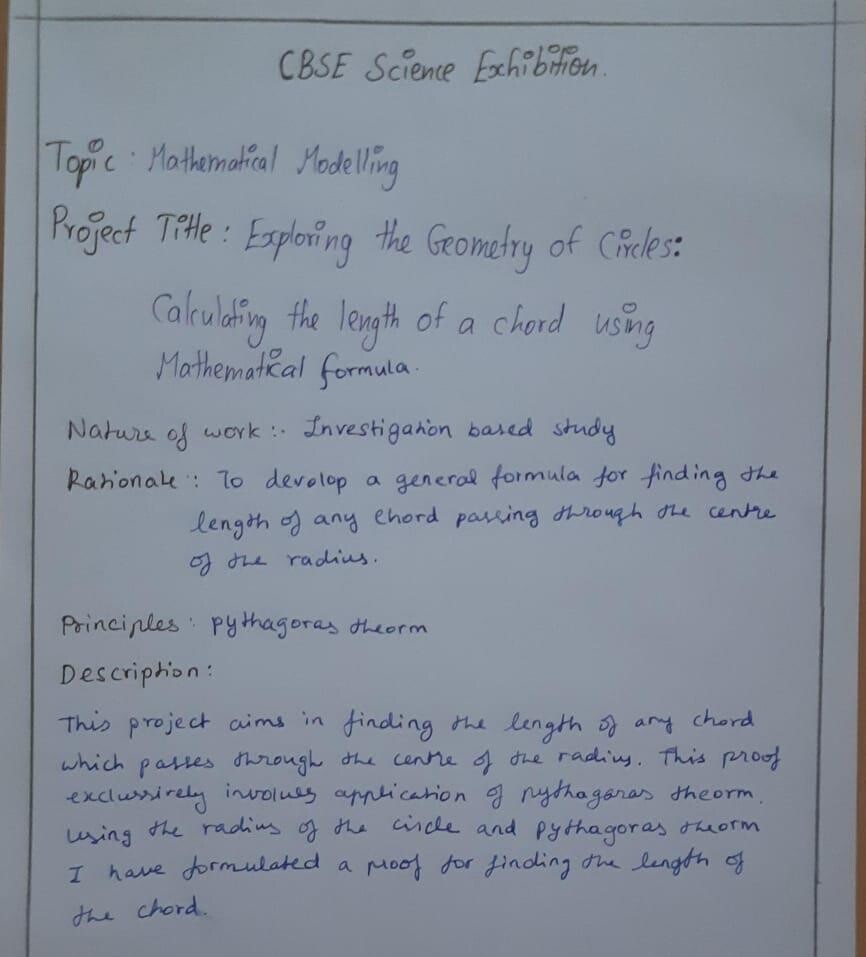 CBSE Science Exhibition.
Topic: Mathematical Modelling
Project Title: Exploring the Geometry of Circles:
Calculating the length of a chord using
Mathematical formula.
Nature of work:- Investigation based study
Rationale: To develop a general formula for finding the
length of any chord passing through the centre
of the radius.
Principles: pythagoras theorm
Description:
This project aims in finding the length of any chord
which passes through the centre of the radius. This proof
exclussively involves application of pythagoras theorm.
using the radius of the circle and pythagoras theorm
I have formulated a proof for finding the length of
the chord.